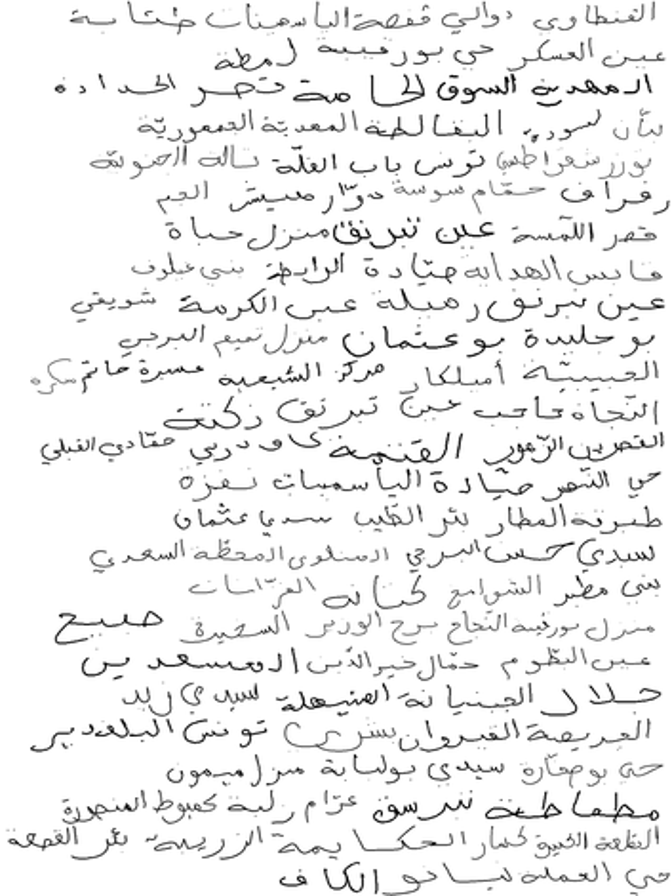 الفنطاوي دوالي قفصة الياسمينات طبابة
عين العسكر حي بورقيبة لمطة
المهدية السوق الحامة قصر الحدادة
البقالطة المهدية الجمهورية
توزر سقراطس تونس باب الفلّة تالة الجنوبيّة
رفراف حمّام سوسة دوّار هيشر الجم
قصر اللّمسة عين تبرنق منزل حياة
قابس الهداية صيّادة الرابطة بني غيلوف
عين تبرنق رميلة عين الكرمة شويقي
بو جليدة بو عثمان منزل تميم البرجي
الحبيبيّة أميلكار مركز الشبعية
النجاة حاجب عين تبرنق زكتة
القصرين الزهور القتنمة حفّادي القبلي
حي النّصر صيّادة الياسمينات نفزة
طبرقة المطار بئر الطّيب سيدي عثمان
سيدي حسن البرجي المحطّة السعدي
بني مطير الشوامخ كتانة العرّاسات
منزل بورقيبة النجاح برج الوزير السخيرة صبيح
عين البطّوم جمّال خيرالدّين المسعدين
جلال الجبنيانة المنيهلة سيدي زيد
العريصة القيروان بشري تونس البلفدير
حيّ بوصفارة سيدي بولبابة منزل ميمون
مطماطة تبرسق عرّام رلبة المنصورة
القلعة الكبرى الحكايمة الزريبة بئر القصعة
حي العملة ليسانو الكاف